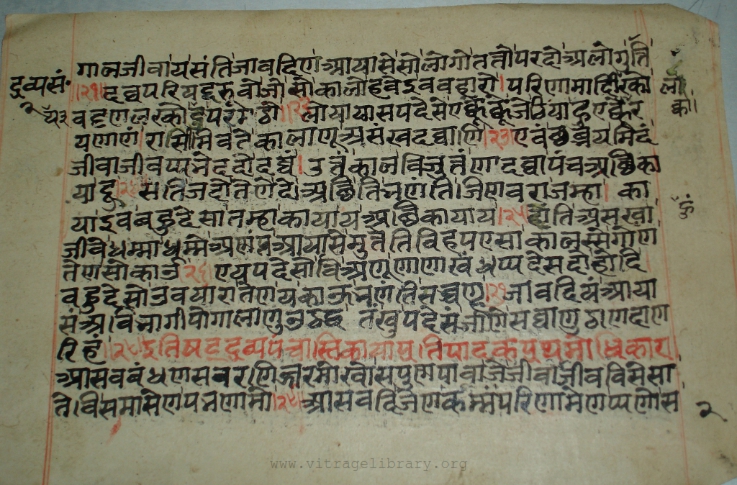 गालजीवायसंतिजावदिए आयासेसोलोगोतत्तोपरदोअलोगुत्ति
द्रव्यसं॰
।२१।दव्वपरियट्टरूवोजोसोकालोहवेइववहारो।परिणामादिलरको
वट्टणलरकोयपरमठो।२२।लोयायासपदेसेएक्केक्केजेठियाहुएक्केर
यणाणं।रासिमिवतेकालाणूअसंखदव्वाणि।२३।एवंछब्भेयमिदं
जीवाजीवप्पभेददोदव्वं।उत्तंकालविजुत्तंणादव्वापंचअछिका
याहु।२४।संतिजदोतेणेदेअछित्तिभणंति।जिणवराजम्हा।का
याइवबहुदेसातम्हाकायायअछिकायाय।२५।होंतिअसंखा
जीवेधम्माधम्मेअणंतआयासेमुत्तेतिविहपएसाकालस्सेगोण
तेणसोकाओ।२६।एयपदेसोविअणूणाणाखंधप्पदेसदोहोदि
बहुदेसोउवयारातेणयकाऊभणंतिसव्वण्हू।२७।जावदियंआया
संअविभागीपोग्गलाणुउट्टद्धंतंखुपदेसंजाणेसव्वाणुठाणदाण
रिहं।२८।इतिषट्द्रव्यपंचास्तिकायाप्रतिपादकप्रथमोधिकारः
आसवबंधणसंवरणिज्जरमोखोसपुणपावाजेजीवाजीवविसेसा
तेविसमासेणपभणामो।२९।आसवदिजेणकम्मंपरिणामेणप्पणोस
२
www.vitragelibrary.org